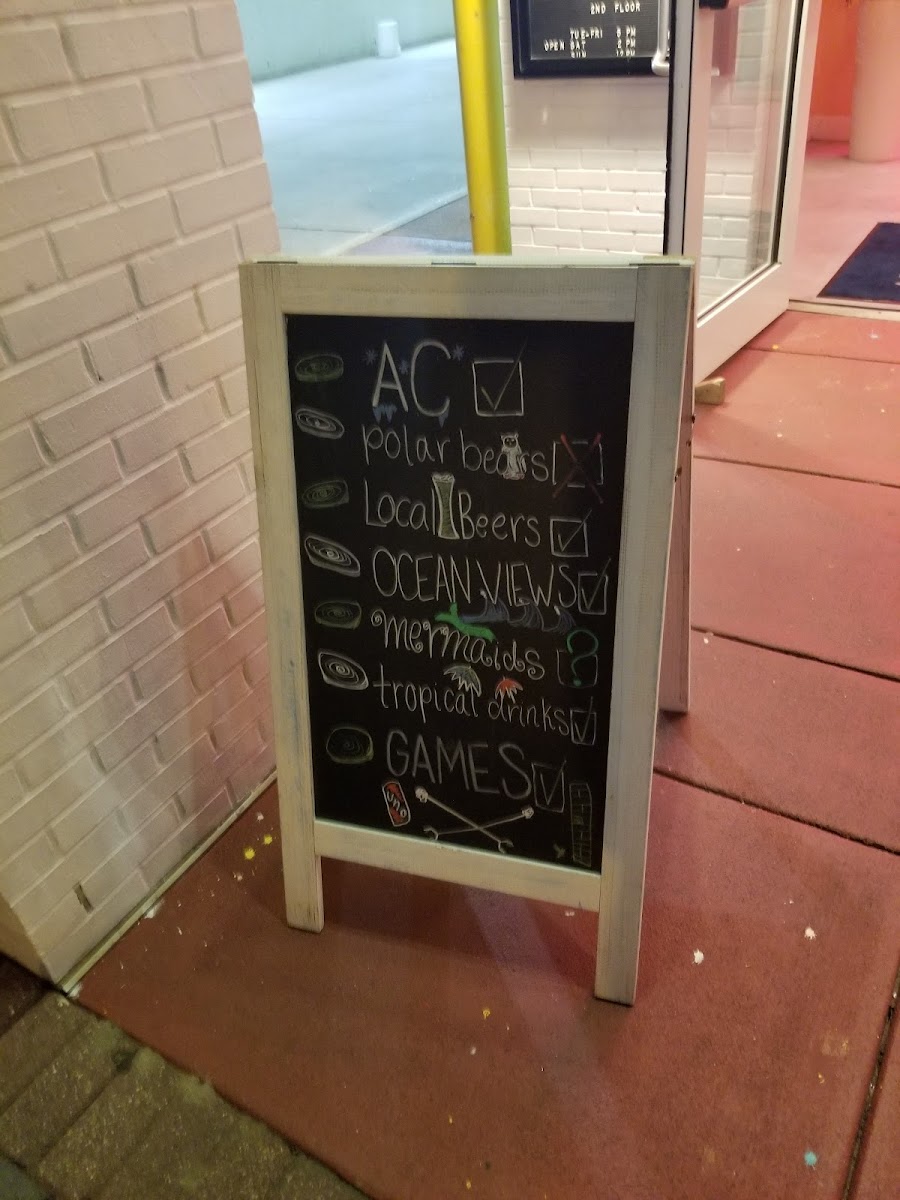 2ND FLOOR
TUE-FRI 5 PM
OPEN SAT 2 PM
SUN 12 PM
AC
polar bears
Local Beers
OCEAN VIEWS
mermaids ?
tropical drinks
GAMES
uno